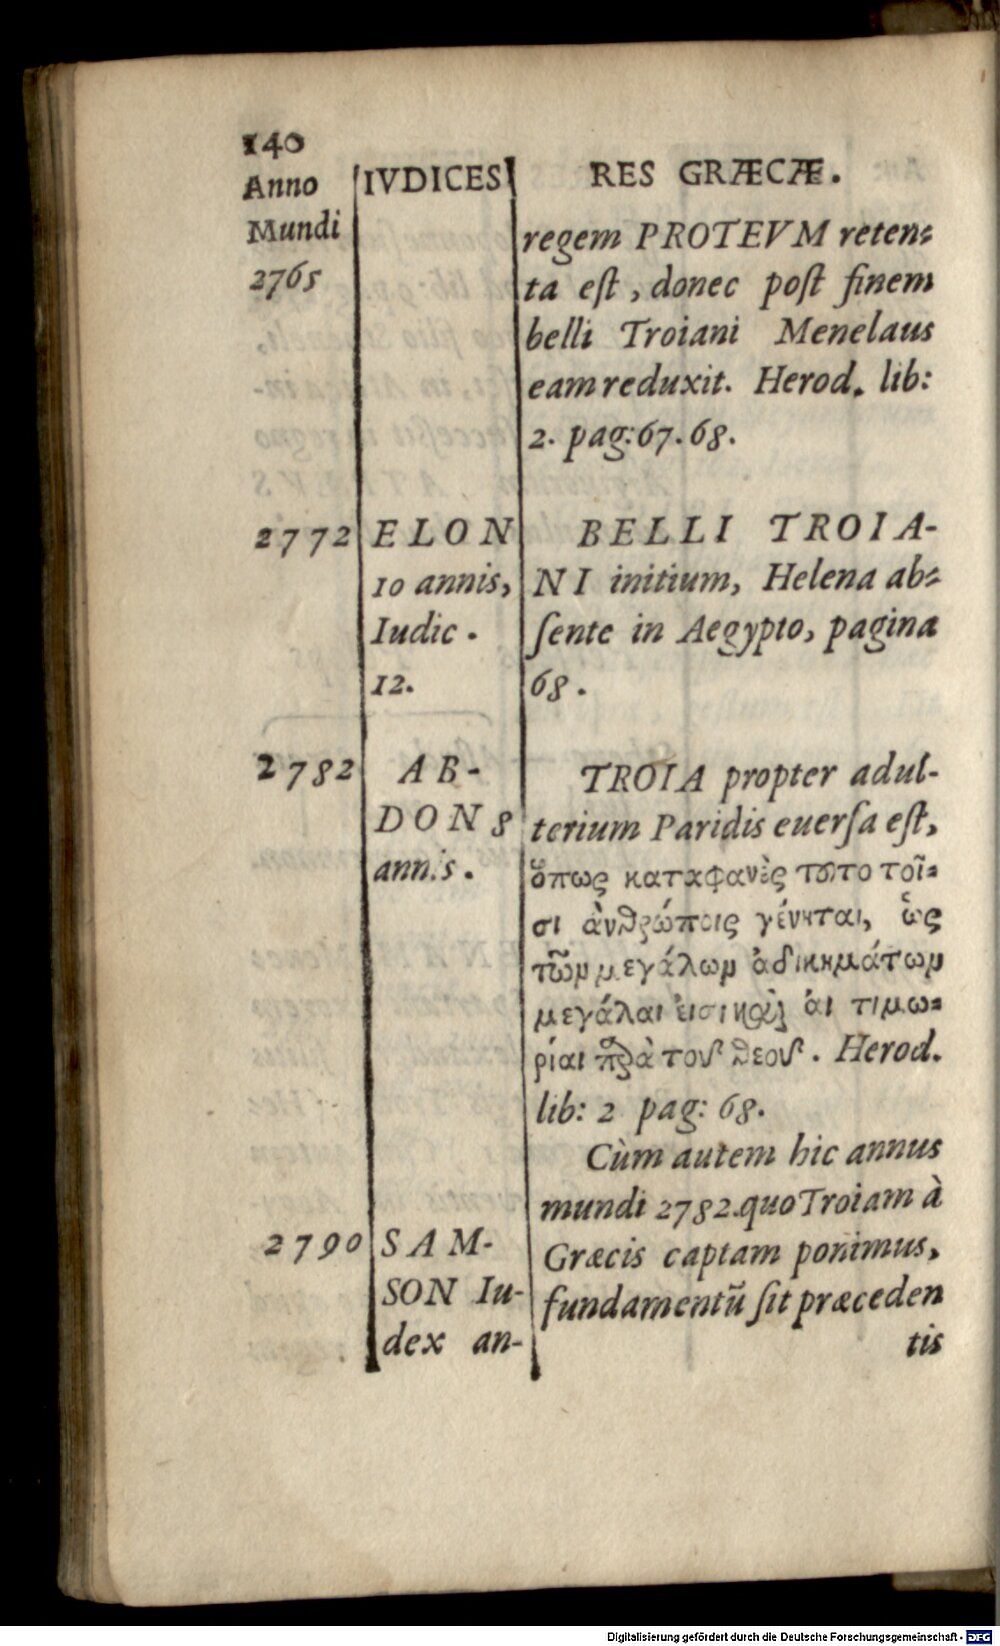 140
Anno
Mundi
2765
IVDICES
RES GRÆCÆ.
regem PROTEVM reten-
ta eſt, donec poſt finem
belli Troiani Menelaus
eam reduxit. Herod. lib:
2. pag: 67. 68.
2772
ELON
10 annis,
Iudic.
12.
BELLI TROIA-
NI initium, Helena ab-
ſente in Aegypto, pagina
68.
2782
AB-
DON 8
annis.
TROIA propter adul-
terium Paridis euerſa eſt,
ὅπως καταφανὲς τȣ͂το τοῖ-
σι ἀνθρώποις γένηται, ὡς
τῶν μεγάλων ἀδικημάτων
μεγάλαι εἰσι καὶ ἁι τιμω-
ρίαι παρὰ τοῦ θεοῦ. Herod.
lib: 2 pag: 68.
Cùm autem hic annus
mundi 2782. quo Troiam à
Græcis captam ponimus,
fundamentũ ſit præceden
tis
2790
SAM-
SON Iu-
dex an-
Digitalisierung gefördert durch die Deutsche Forschungsgemeinschaft - DFG